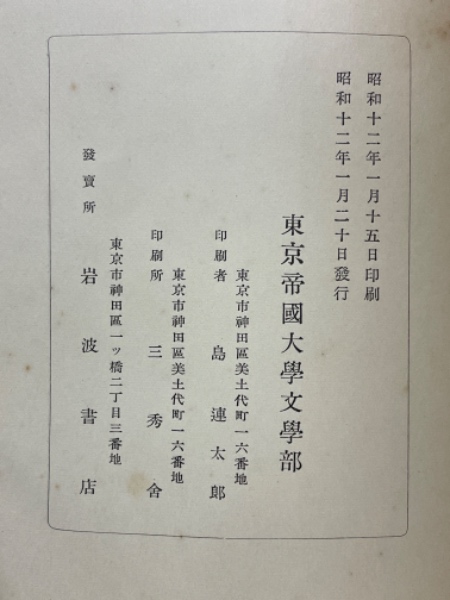 昭和十二年一月十五日印刷
昭和十二年一月二十日發行
東京帝國大學文學部
東京市神田區美土代町一六番地
印刷者 島連太郎
東京市神田區美土代町一六番地
印刷所 三秀舍
東京市神田區一ッ橋二丁目三番地
發賣所 岩波書店